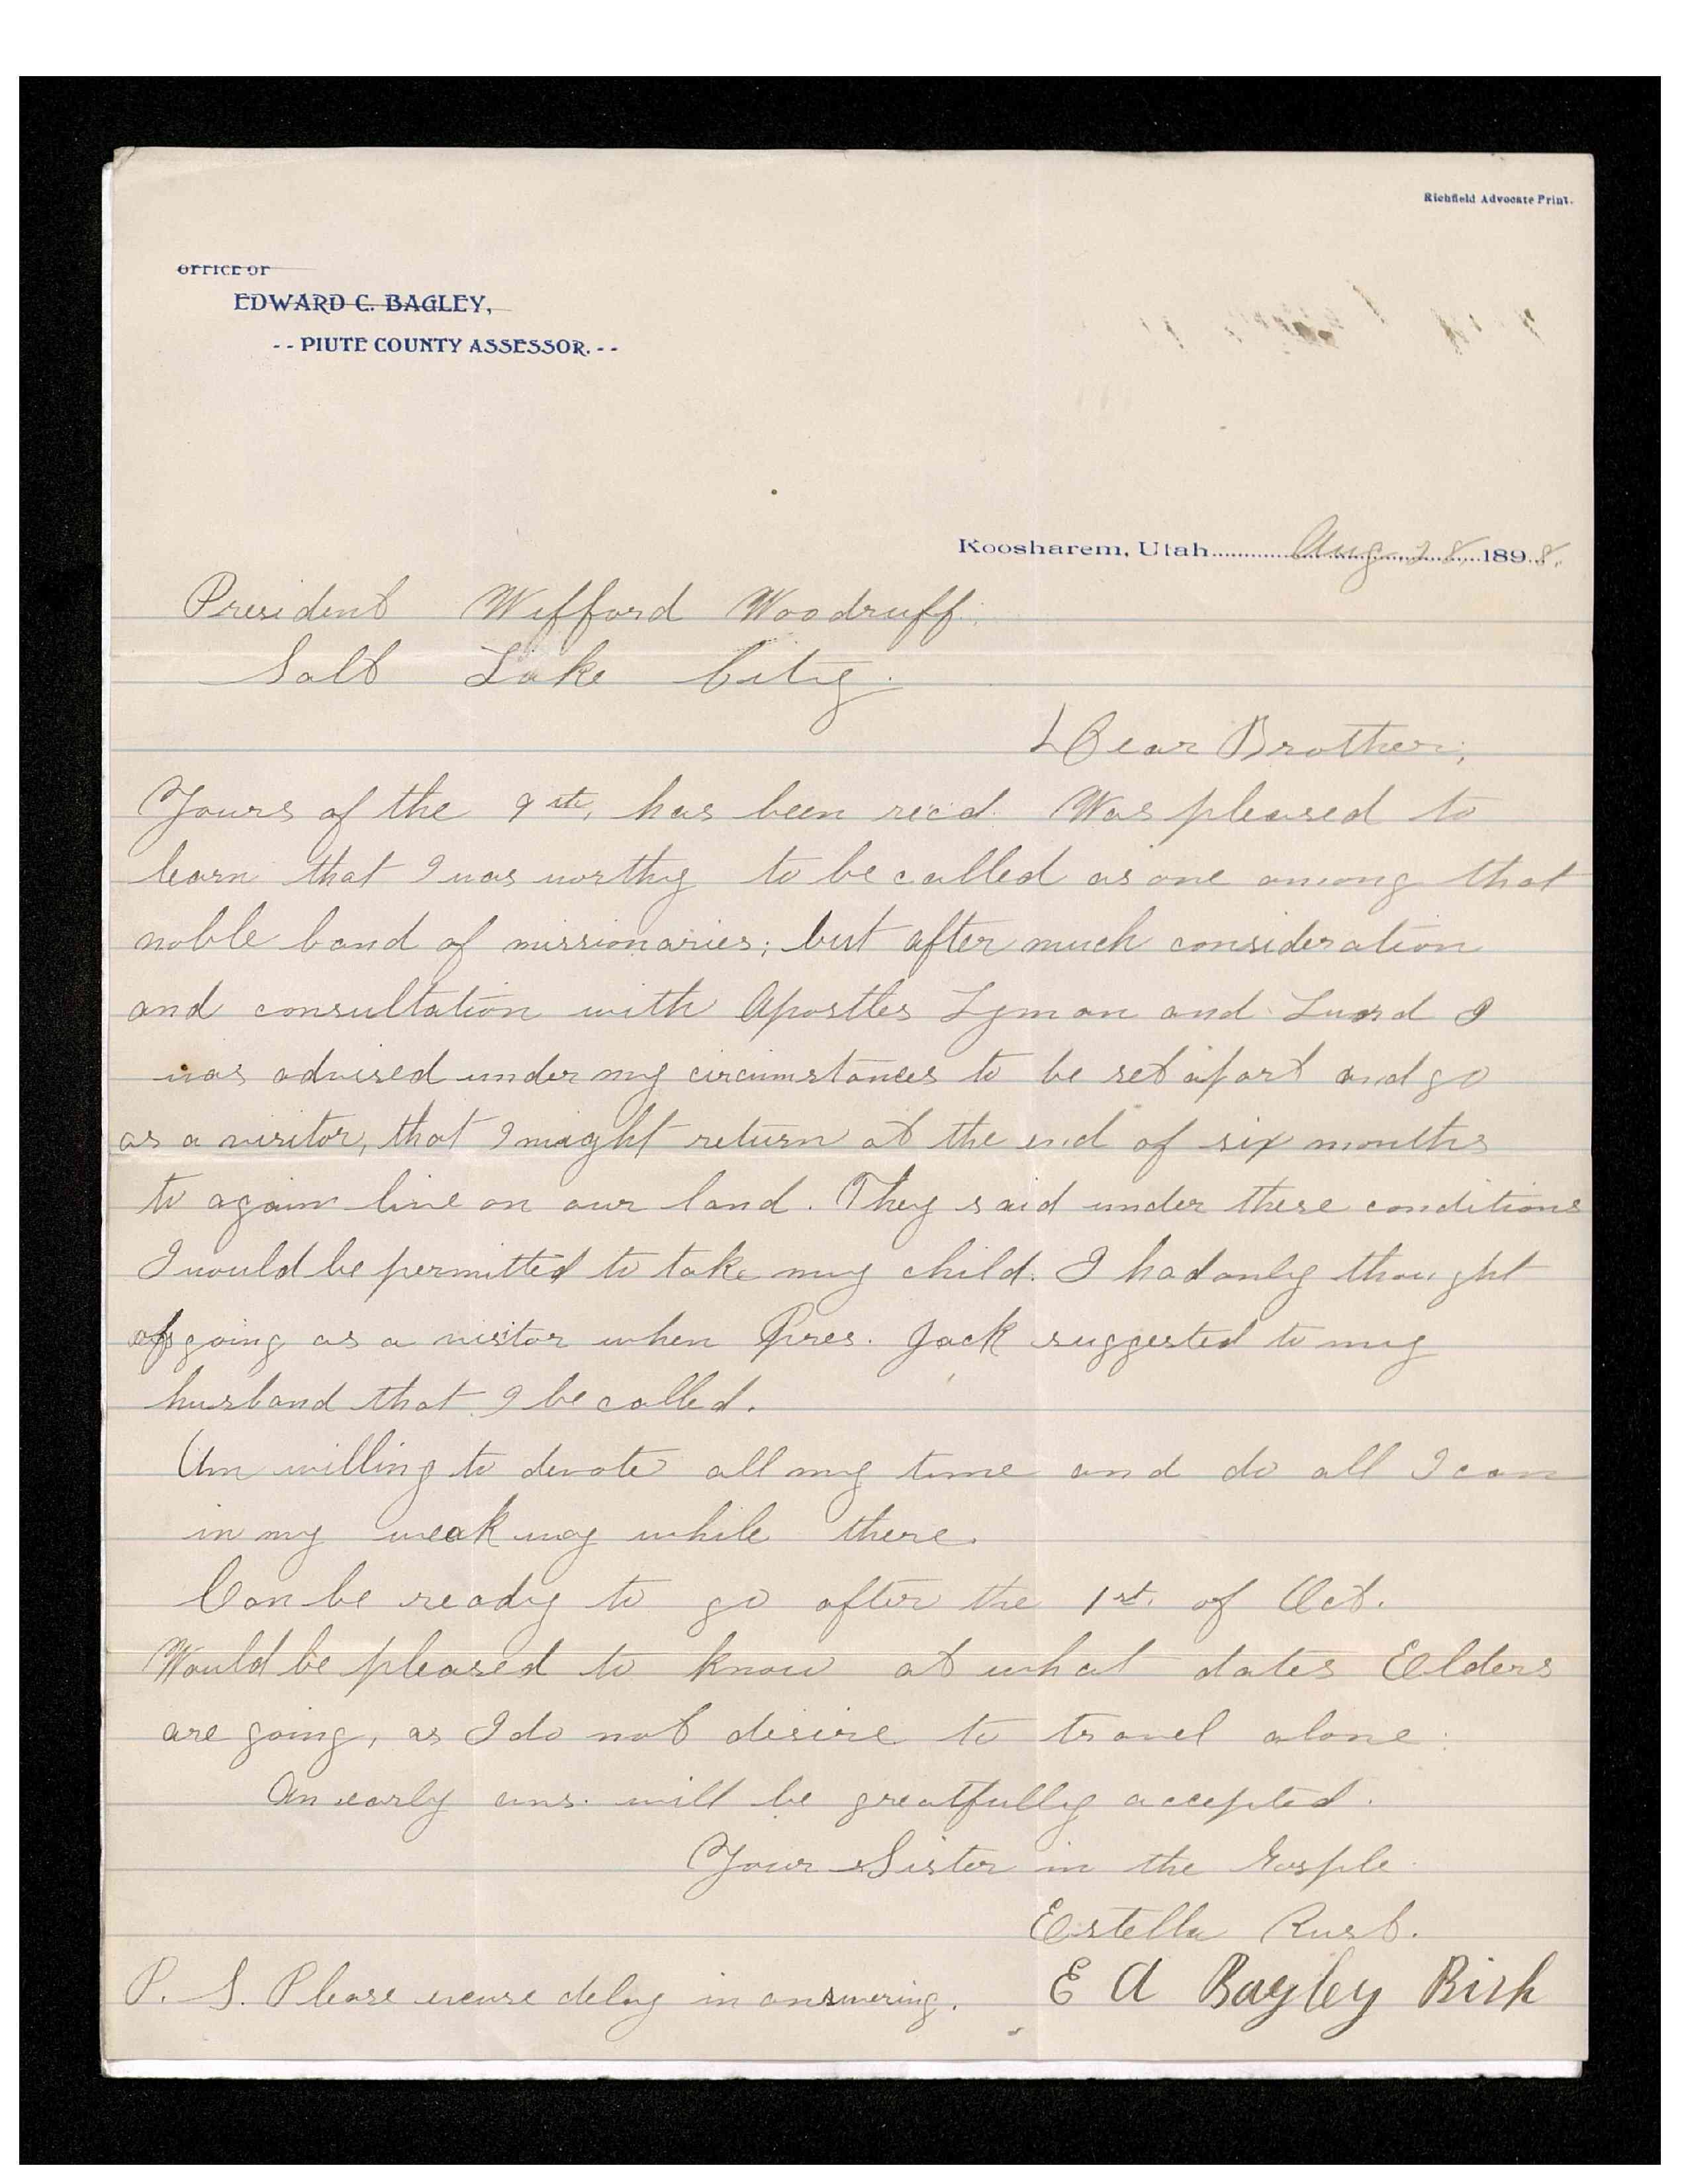 Richfield Advocate Print.
OFFICE OF
EDWARD C. BAGLEY,
- - PIUTE COUNTY ASSESSOR. - -
Koosharem, Utah Aug 28 1898.
President Wifford Woodruff.
Salt Lake City.
Dear Brother;
Yours of the 9th, has been rec'd. Was pleased to
learn that I was worthy to be called as one among that
noble band of missionaries; but after much consideration
and consultation with Apostles Lyman and Lund I
was advised under my circumstances to be set apart and go
as a visitor, that I might return at the end of six months
to again live on our land. They said under these conditions
I would be permitted to take my child. I had only thought
of going as a visitor when Pres. Jack suggested to my
husband that I be called.
Am willing to devote all my time and do all I can
in my weak way while there.
Can be ready to go after the 1st. of Oct.
Would be pleased to know at what dates Elders
are going, as I do not desire to travel alone.
An early ans. will be greatfully accepted.
Your Sister in the Gosple
Estella Rust.
P. S. Please excuse delay in answering.
E A Bagley Bish